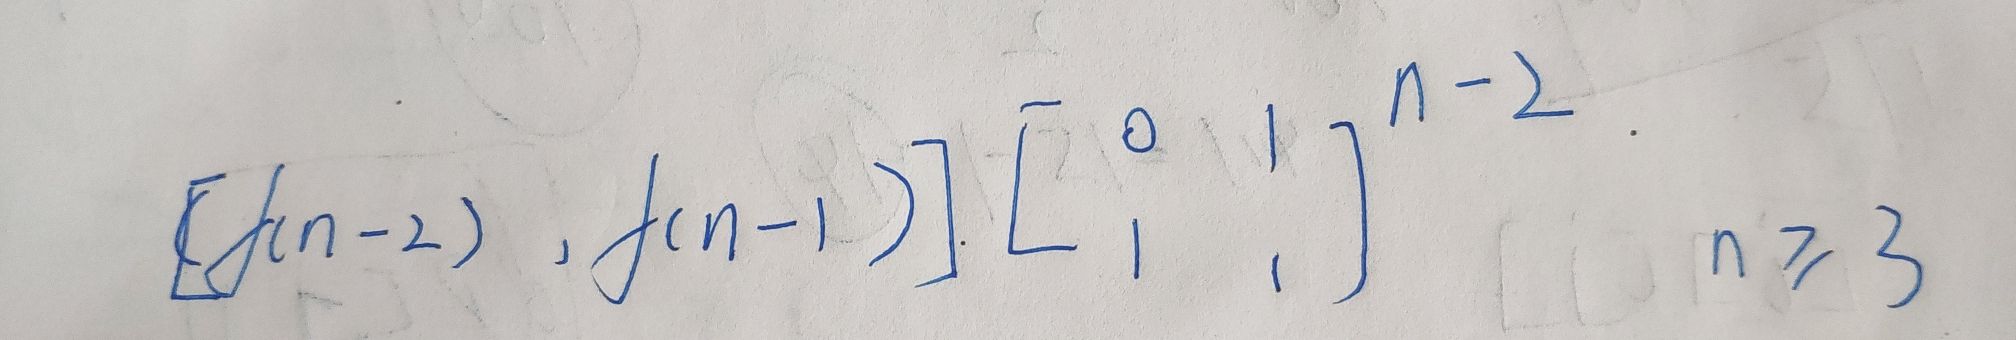 [f(n-2), f(n-1)]·[0 1
1 1]^{n-2} n ≥ 3